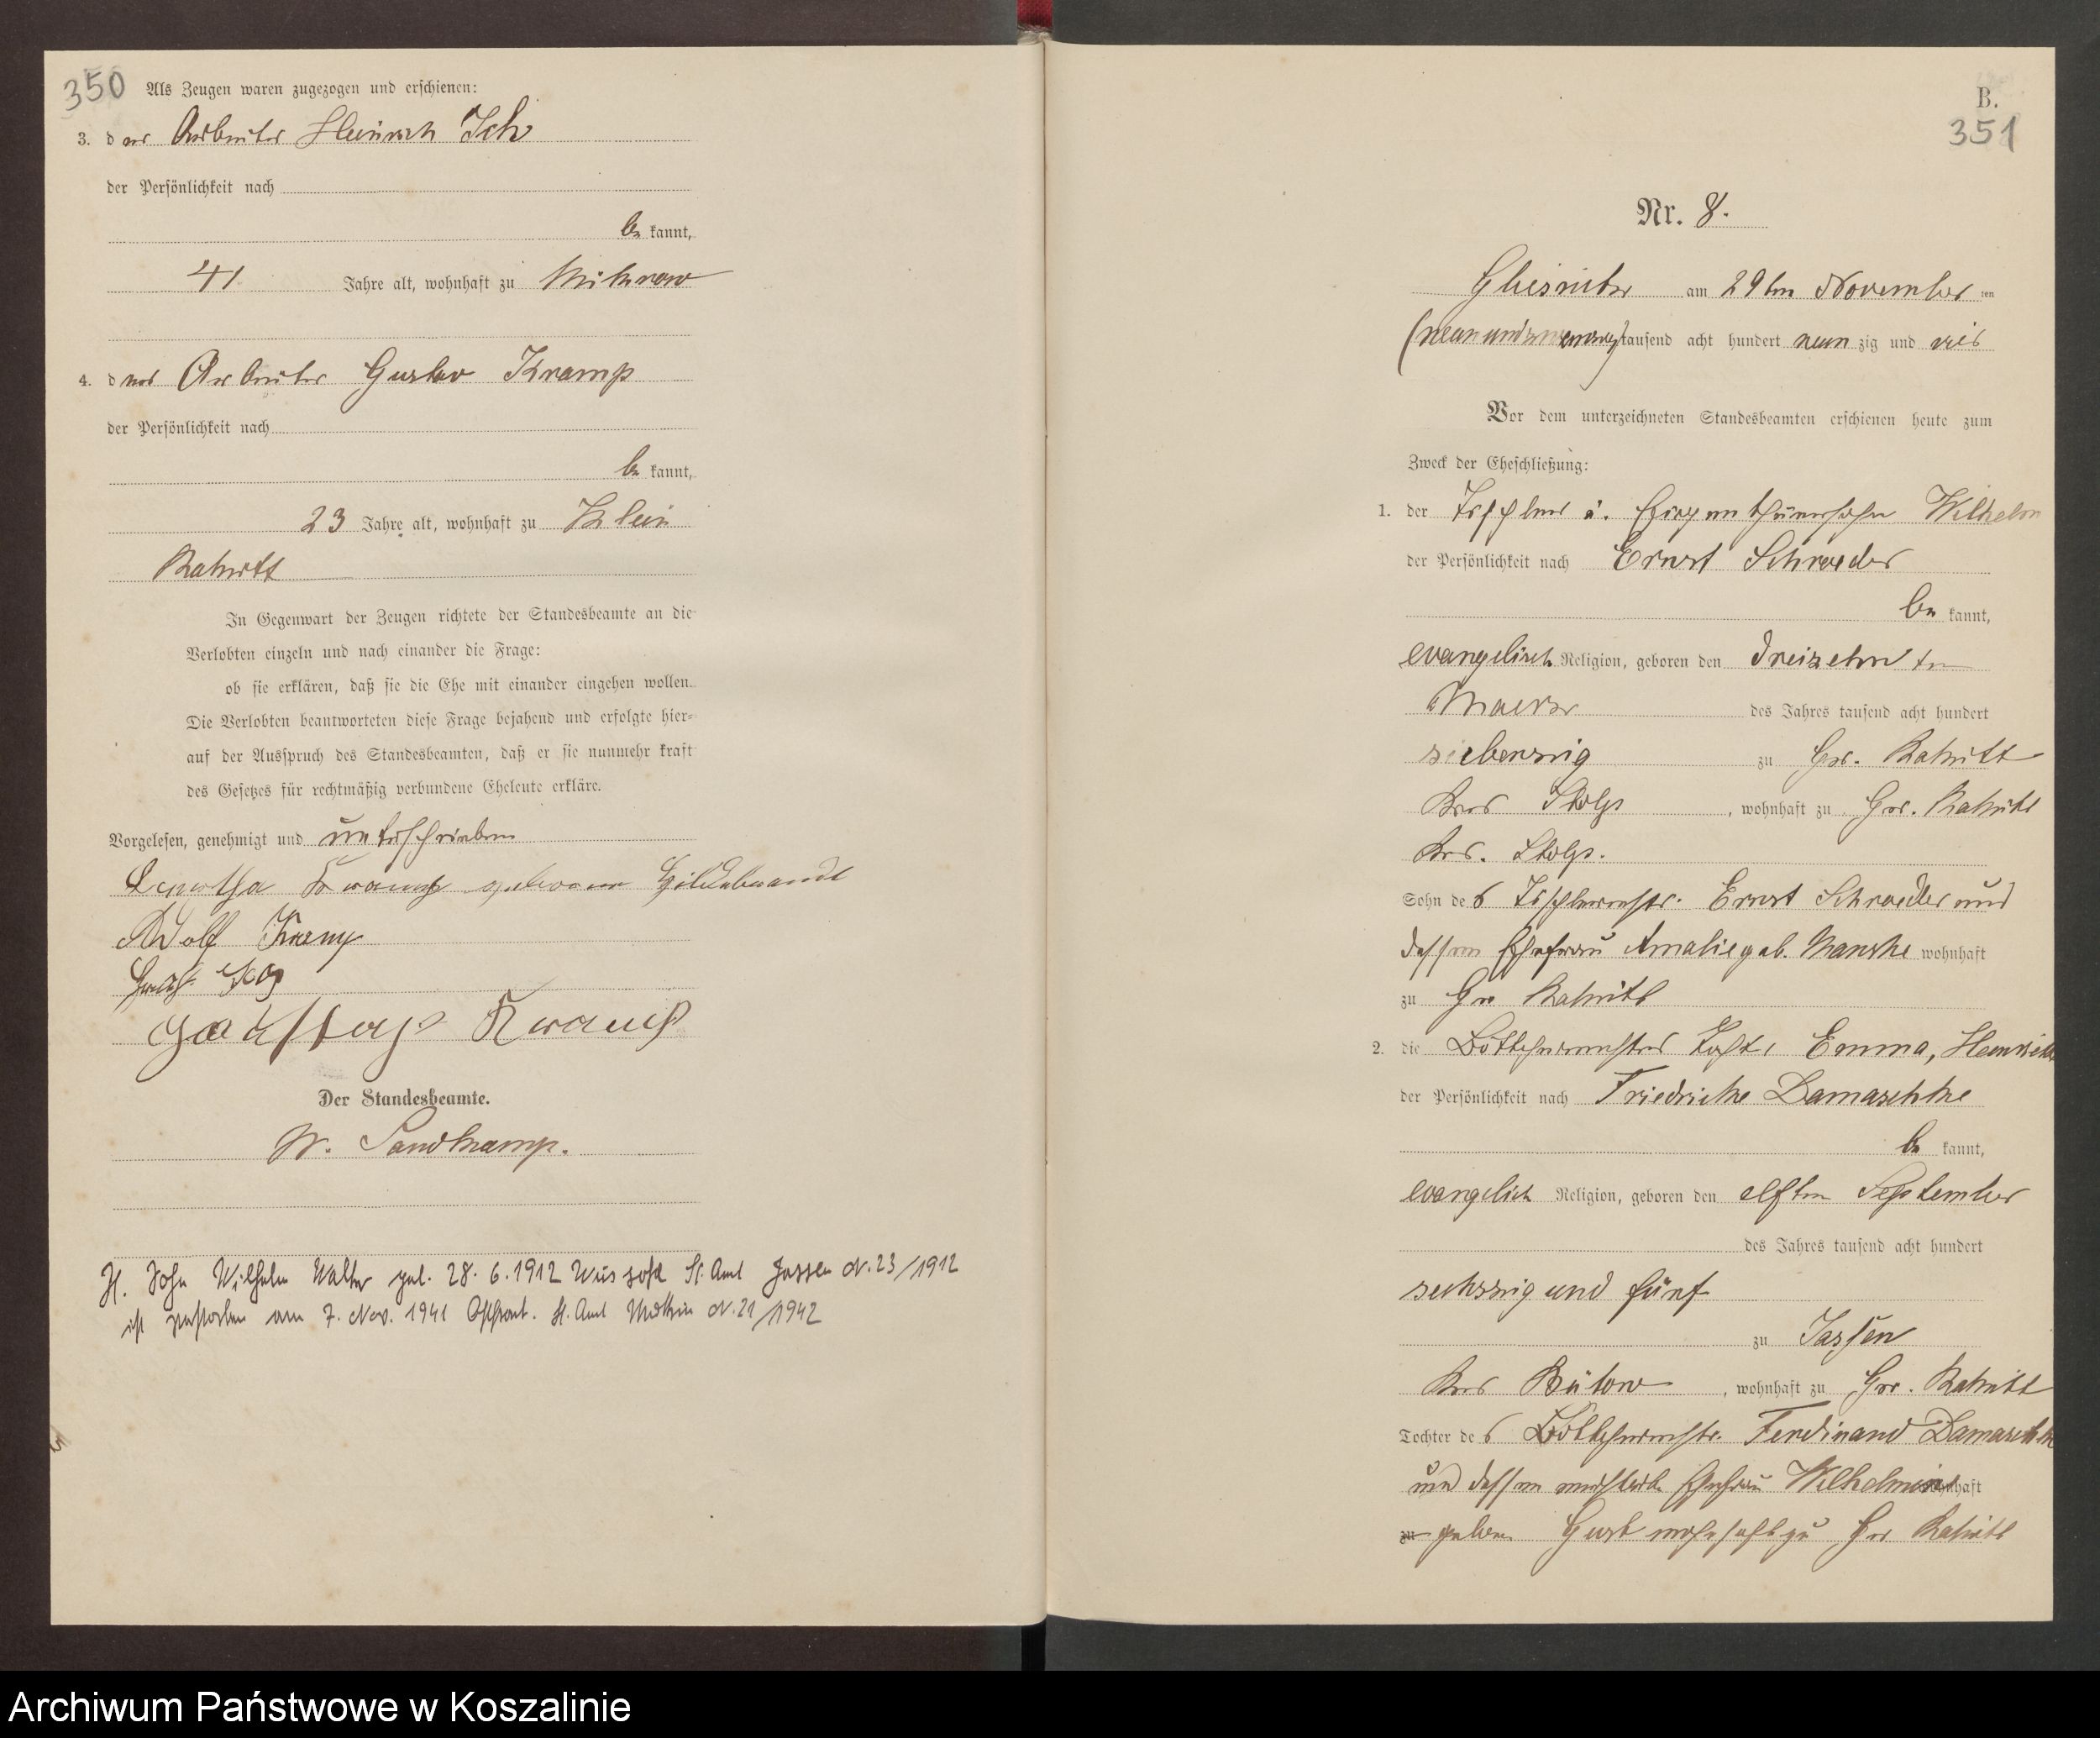 350 Als Zeugen waren zugezogen und erschienen:
3. der Arbeiter Heinrich
der Persönlichkeit nach
bekannt,
41 Jahre alt, wohnhaft zu Mikrow
4. der Arbeiter Gustav Kramp
der Persönlichkeit nach
bekannt,
23 Jahre alt, wohnhaft zu Klein
Rakitt
In Gegenwart der Zeugen richtete der Standesbeamte an die
Verlobten einzeln und nach einander die Frage:
ob sie erklären, daß sie die Ehe mit einander eingehen wollen.
Die Verlobten beantworteten diese Frage bejahend und erfolgte hier-
auf der Ausspruch des Standesbeamten, daß er sie nunmehr kraft
des Gesetzes für rechtmäßig verbundene Eheleute erkläre.
Vorgelesen, genehmigt und unterschrieben
Kramp geborene Hildebrandt
Adolf Kramp
Kramp
Der Standesbeamte.
W. Sandkamp.
H. Sohn Wilhelm Walter geb. 28. 6. 1912 Wussow St. Amt Jassen N. 23/1912
ist gestorben am 7. Nov. 1941 Ostfront. St. Amt N. 21/1942
B.
351
Nr. 8.
Gliesnitz am 29ten November
(neunundzwanzig) tausend acht hundert neunzig und
Vor dem unterzeichneten Standesbeamten erschienen heute zum
Zweck der Eheschließung:
1. der Tischler u. Eigenthümersohn Wilhelm
der Persönlichkeit nach Ernst Schroeder
bekannt,
evangelisch Religion, geboren den dreizehnten
Maerz des Jahres tausend acht hundert
siebenzig zu Gr. Rakitt
Krs Stolp, wohnhaft zu Gr. Rakitt
Krs. Stolp.
Sohn des Tischlermstr. Ernst Schroeder und
dessen Ehefrau Amalie geb. Manske wohnhaft
zu Gr Rakitt
2. die Böttchermeister Tocht. Emma, Henriette
der Persönlichkeit nach Friedricke Damaschke
bekannt,
evangelisch Religion, geboren den elften September
des Jahres tausend acht hundert
sechszig und fünf
zu Jassen
Krs Bütow, wohnhaft zu Gr. Rakitt
Tochter des Böttchermstr. Ferdinand Damaschke
und dessen verstorb. Ehefrau Wilhelmine wohnhaft
zu geboren Gust wohnhaft zu Gr Rakitt
Archiwum Państwowe w Koszalinie